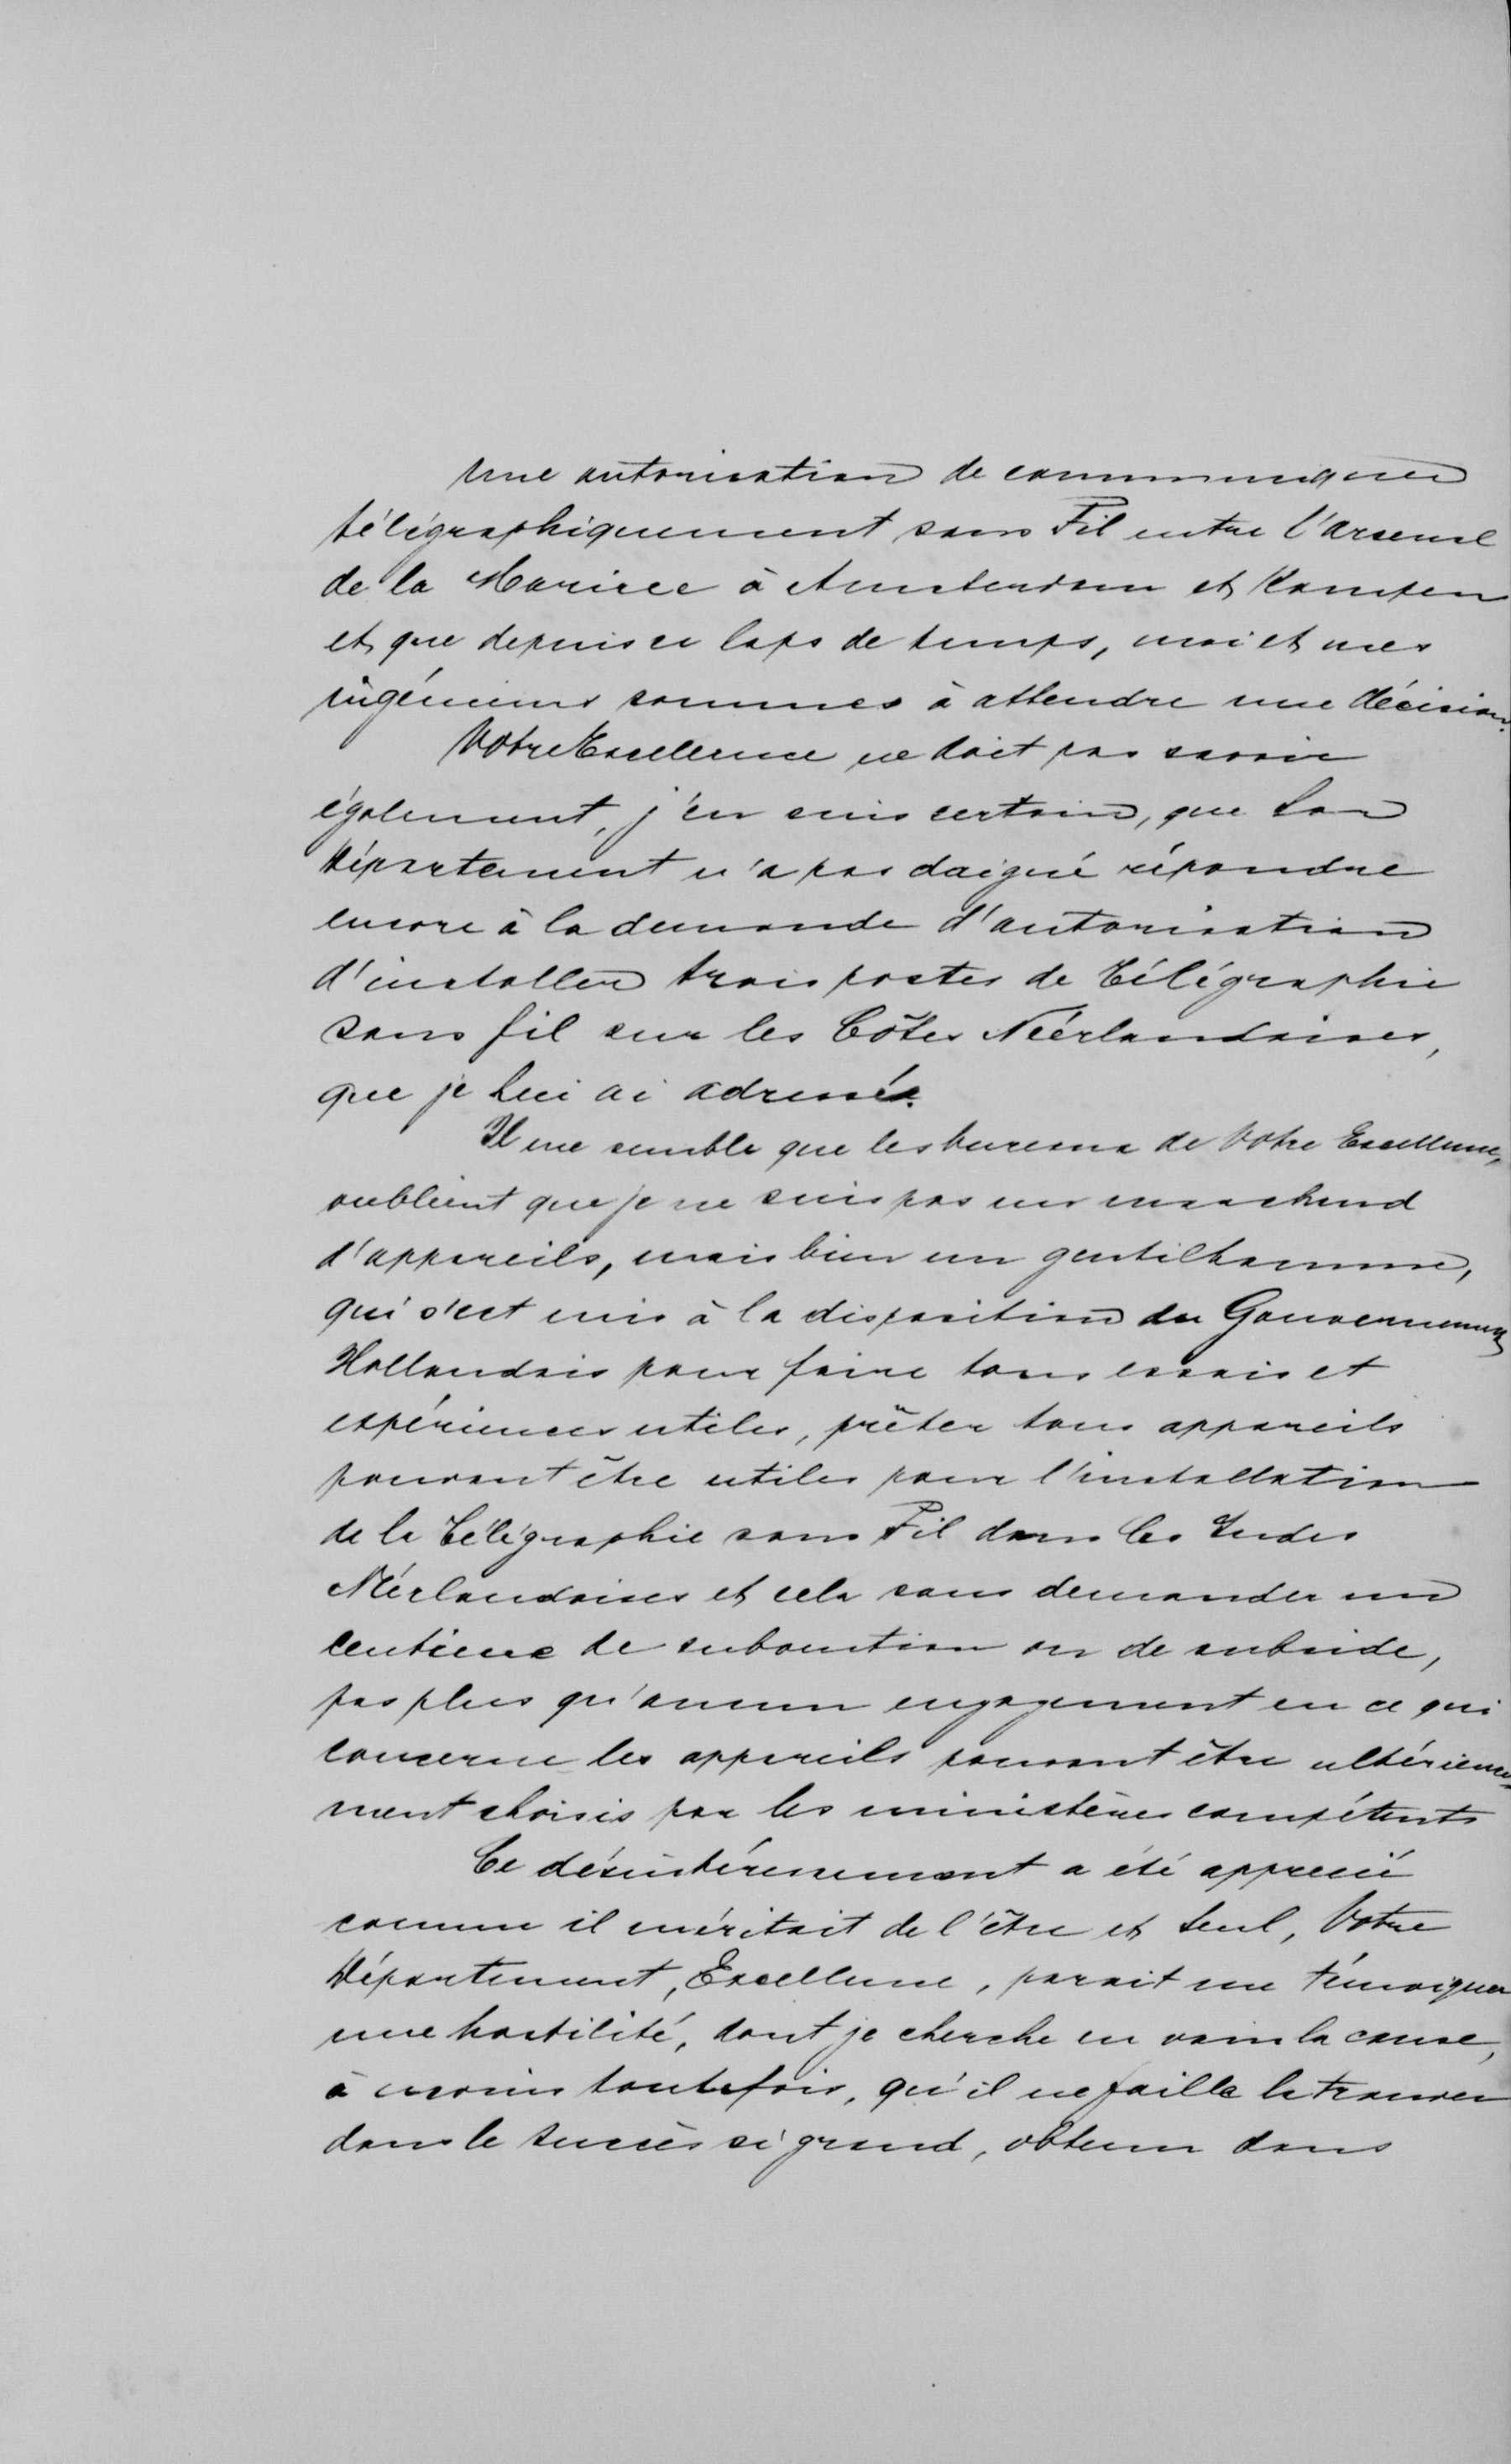 une autorisation de communiquer
télégraphiquement sans Fil entre l'arsenal
de la Marine à Amsterdam et Kampen
et que depuis ce laps de temps, moi et mes
ingénieurs sommes à attendre une décision.
Votre Excellence ne doit pas savoir
également, j'en suis certain, que Son
Département n'a pas daigné répondre
encore à la demande d'autorisation
d'installer trois postes de Télégraphie
sans fil sur les Côtes Néerlandaises,
que je lui ai adressée.
Il me semble que les bureaux de Votre Excellence,
oublient que je ne suis pas un marchand
d'appareils, mais bien un gentilhomme,
qui s'est mis à la disposition du Gouvernement
Hollandais pour faire tous essais et
expériences utiles, prêter tous appareils
pouvant être utiles pour l'installation
de la Télégraphie sans Fil dans les Indes
Néerlandaises et cela sans demander un
centime de subvention ou de subside,
pas plus qu'aucun engagement en ce qui
concerne les appareils pouvant être ultérieure-
ment choisis par les ministères compétents
Ce désintéressement a été apprécié
comme il méritait de l'être et seul, Votre
Département, Excellence, parait me témoigner
une hostilité, dont je cherche en vain la cause,
à moins toutefois, qu'il ne faille la trouver
dans le succès si grand, obtenu dans